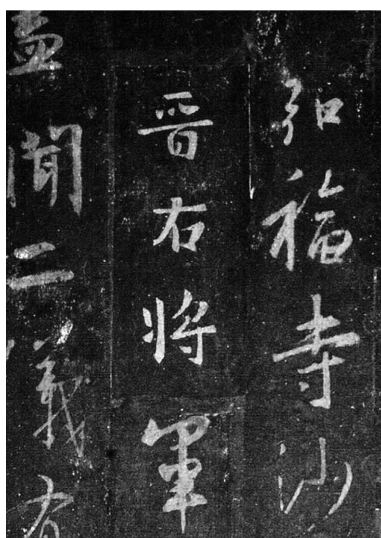 弘福寺沙
晉右將軍
盖聞二儀有